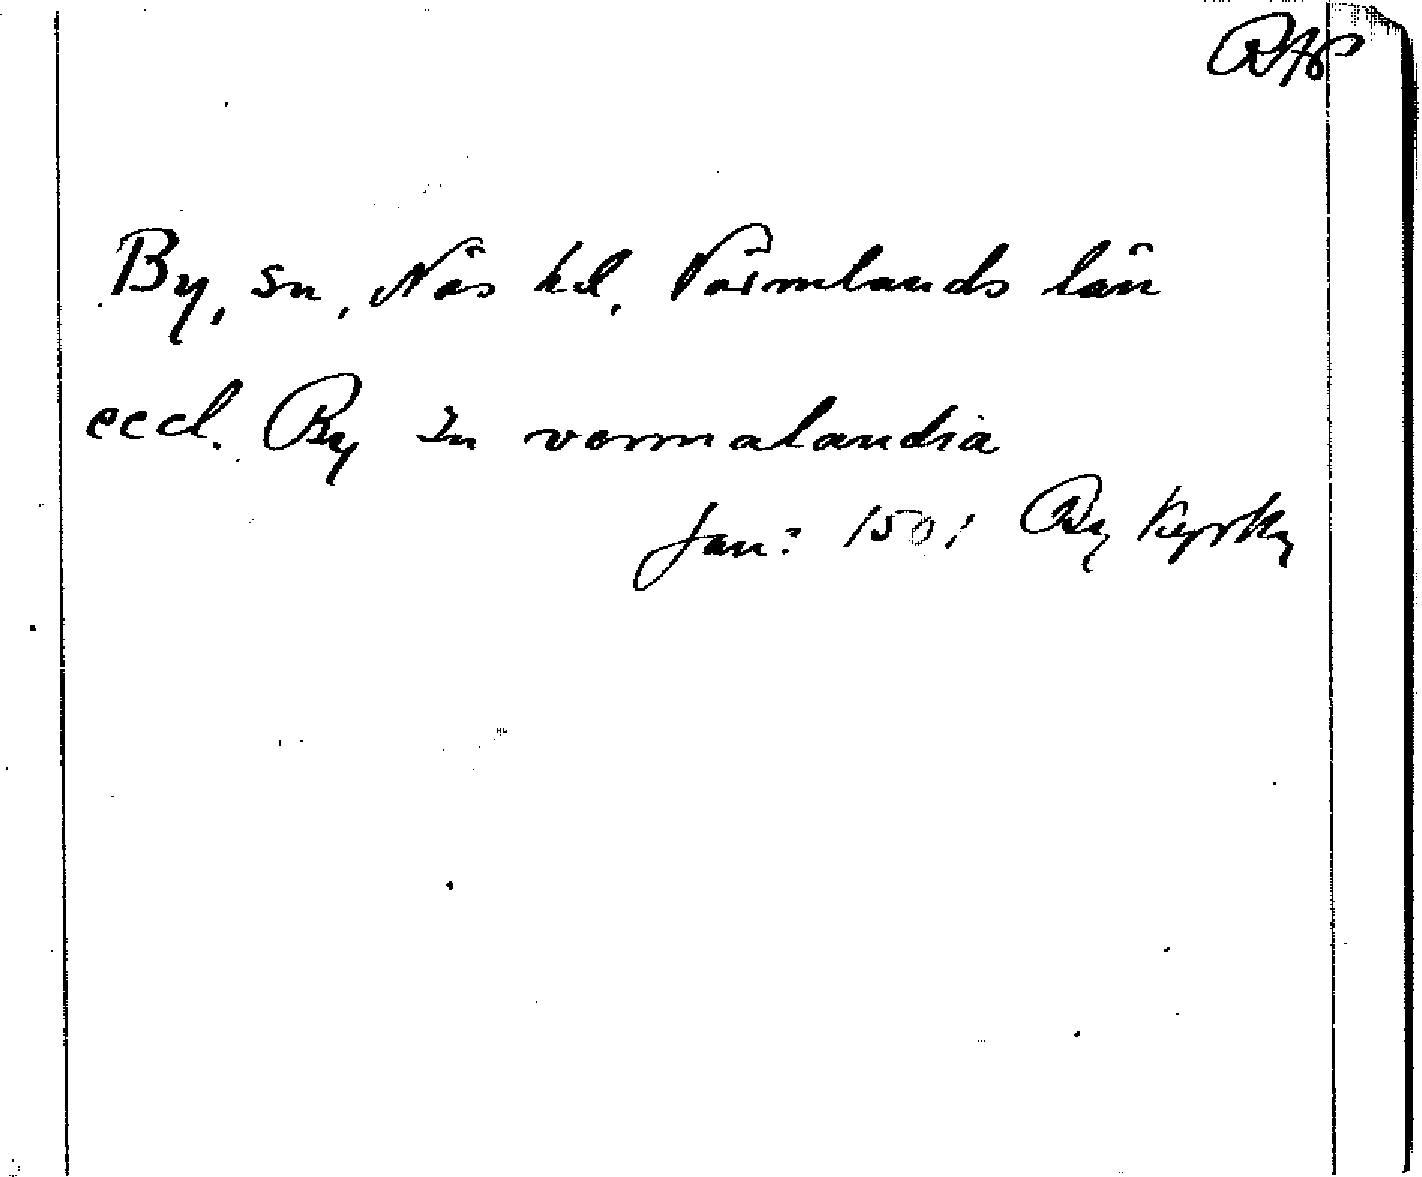 By, sn, Näs hd, Värmlands län
eccl. By In vermalandia
Jan: 1501 By kyrka